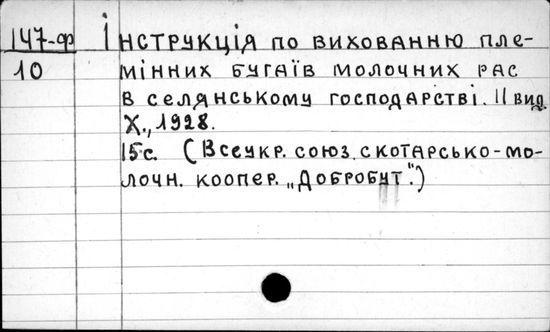 147-ф Інструкція по вихованню пле-
10 мінних бугаїв молочних рас
в селянському господарстві. II вид.
Х., 1928.
15с. (Всеукр. союз. скотарсько-мо-
лочн. коопер. „Добробут".)